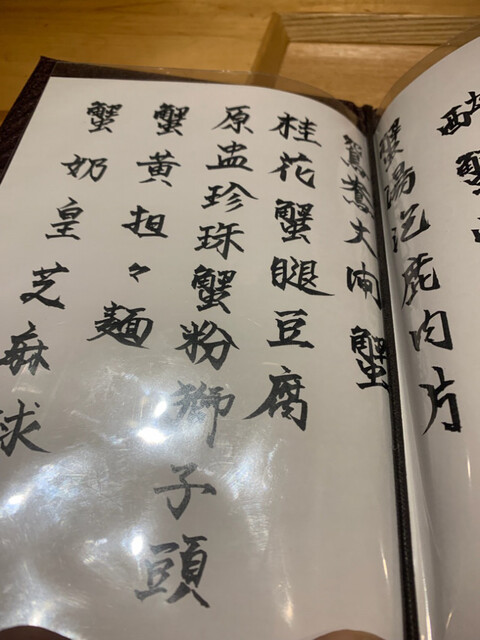 蟹
蟹湯泡鹿肉片
鴛鴦大閘蟹
桂花蟹腿豆腐
原盅珍珠蟹粉獅子頭
蟹黃担々麵
蟹奶皇芝麻球